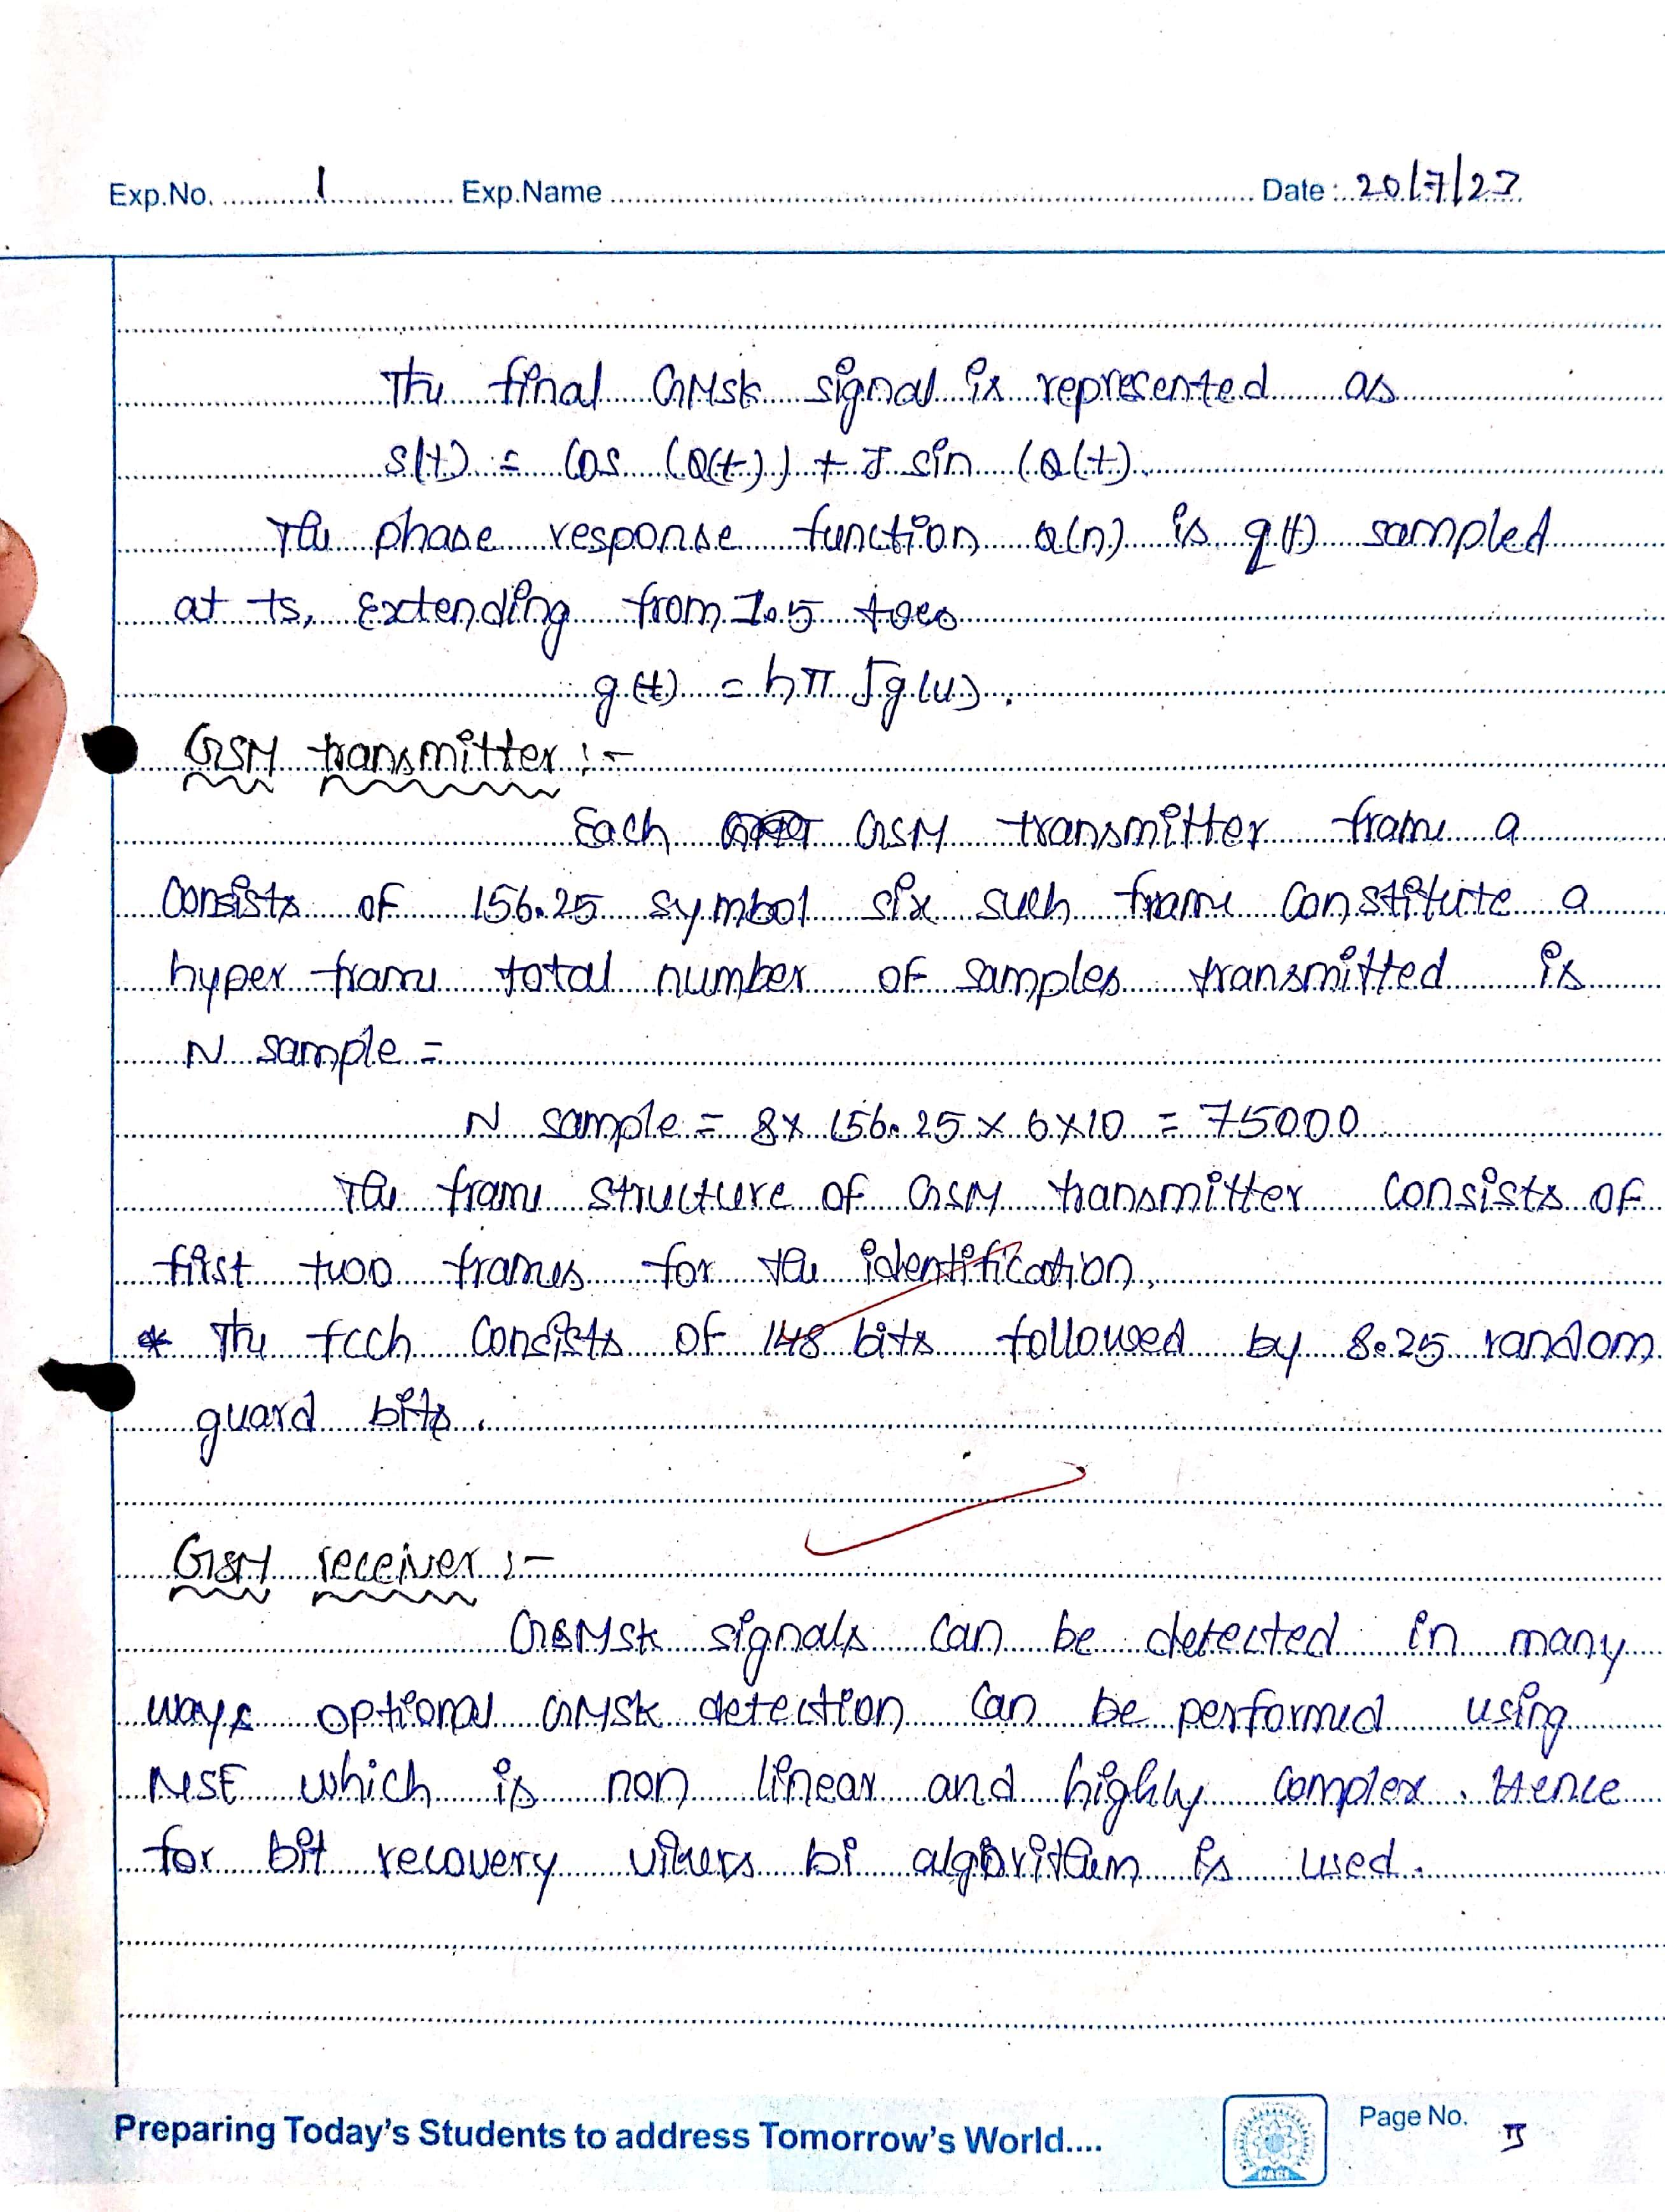 Exp.No. 1 Exp.Name Date: 20/7/23
The final GMSK signal is represented as
s(t) = Cos (Q(t)) + J sin (Q(t).
The phase response function Q(n) is q(t) sampled
at ts, Extending from
g(t) = hπ ∫g(u).
GSM transmitter :-
Each GSM transmitter frame a
Consists of 156.25 symbol six such frame Constitute a
hyper frame total number of samples transmitted is
N sample =
N sample = 8x 156.25 x 6x10 = 75000
The frame structure of GSM transmitter Consists of
first two frames for the identification.
* The fcch Consists of 148 bits followed by 8.25 random
guard bits.
GSM receiver :-
GMSK signals Can be detected in many
ways optional GMSK detection Can be performed using
MSE which is non linear and highly Complex. Hence
for bit recovery bi algorithm is used.
Preparing Today's Students to address Tomorrow's World....
Page No. II